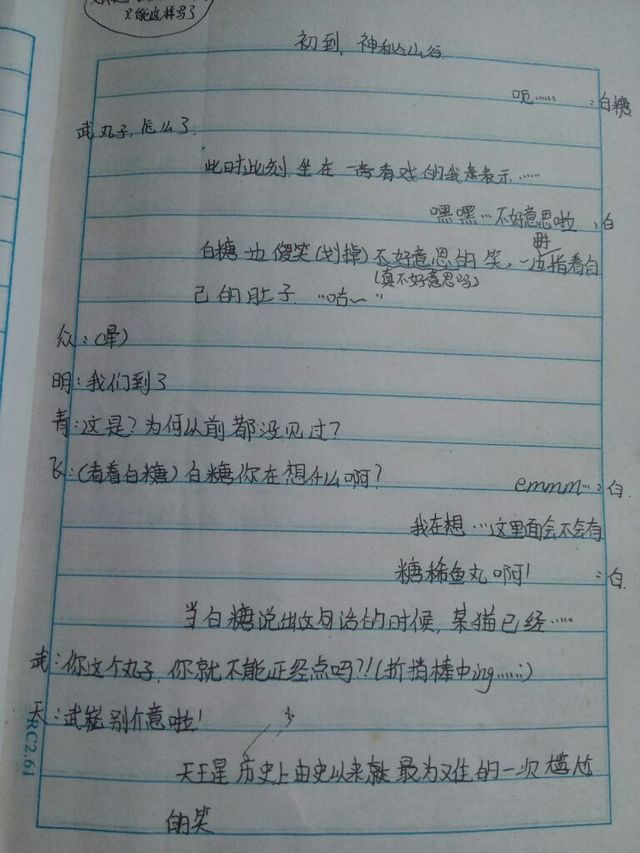 只能这样写了
初到,神秘山谷
呃……:白糖
武 丸子,怎么了.
此时此刻,坐在一旁看戏的我表示……
嘿嘿…不好意思啦 :白
白糖边傻笑(划掉)不好意思的笑,一边指着自
(真不好意思吗)
己的肚子.“咕~”
众:(晕)
明:我们到了
青:这是?为何以前都没见过?
飞:(看着白糖)白糖你在想什么啊?
emmm…:白.
我在想…这里面会不会有
糖稀鱼丸啊! :白.
当白糖说出这句话的时候,某猫已经……
武:你这个丸子,你就不能正经点吗?!(折挡棒中ing……)
天:武崩别介意啦!
天王星历史上由史以来最为难的一次尴尬
的笑
RC2.61